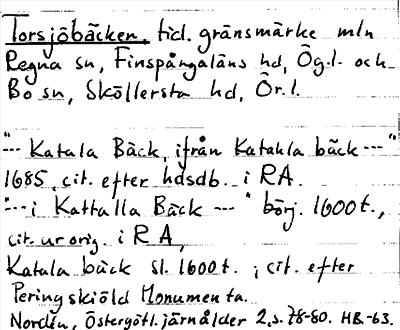 Torsjöbäcken, tid. gränsmärke mln
Regna sn, Finspångaläns hd, Ög.l. och
Bo sn, Sköllersta hd, Ör.l.
"--- Katala Bäck, ifrån Katahla bäck ---"
1685, cit. efter hdsdb. i RA.
"--- i Kattalla Bäck --- " börj. 1600 t.,
cit. ur orig. i RA,
Katala bäck sl. 1600 t. , cit. efter
Peringskiöld Monumenta.
Nordén, Östergötl. järnålder 2, s. 78-80. HB.-63.